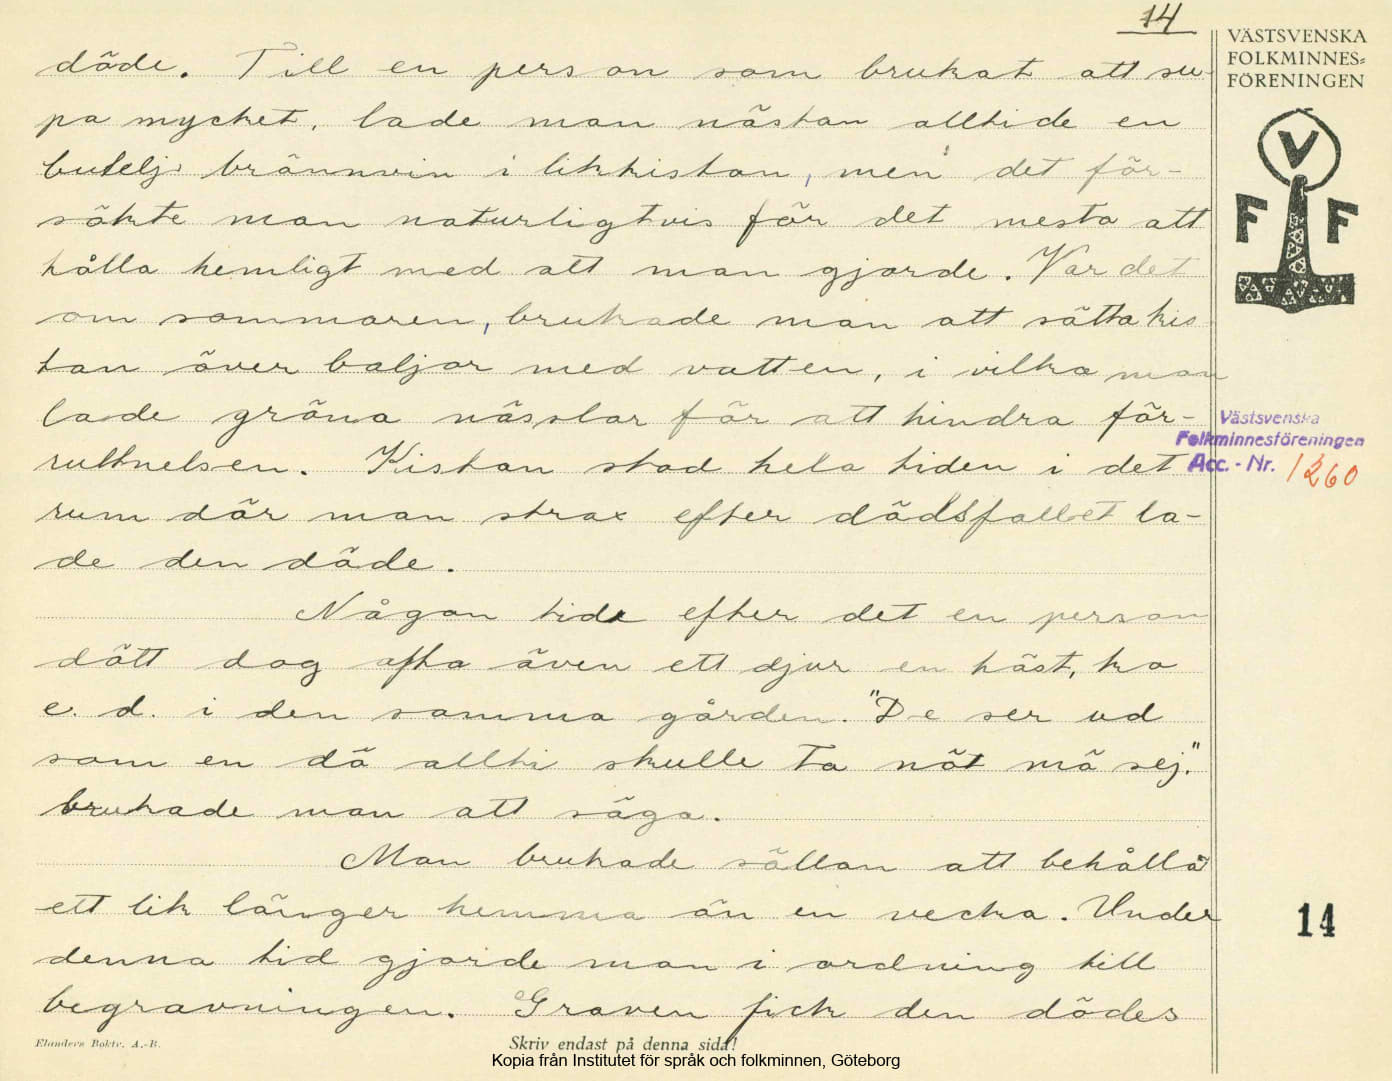 14
VÄSTSVENSKA
FOLKMINNES=
FÖRENINGEN
V
F F
döde. Till en person som brukat att su-
pa mycket, lade man nästan alltide en
butelj brännvin i likkistan, men det för-
sökte man naturligtvis för det mesta att
hålla hemligt med att man gjorde. Var det
om sommaren, brukade man att sätta kis
tan över baljor med vatten, i vilka man
lade gröna nässlor för att hindra för-
ruttnelsen. Kistan stod hela tiden i det
rum där man strax efter dödsfallet la-
de den döde.
Någon tid efter det en person
dött dog ofta även ett djur en häst, ko
e. d. i den samma gården. "De ser ud
som en dö allti skulle ta nöt mä sej."
brukade man att säga.
Man brukade sällan att behålla
ett lik länger hemma än en vecka. Under
denna tid gjorde man i ordning till
begravningen. Graven fick den dödes
Västsvenska
Folkminnesföreningen
Acc. - Nr. 1260
14
Elanders Boktr. A.-B.
Skriv endast på denna sida!
Kopia från Institutet för språk och folkminnen, Göteborg